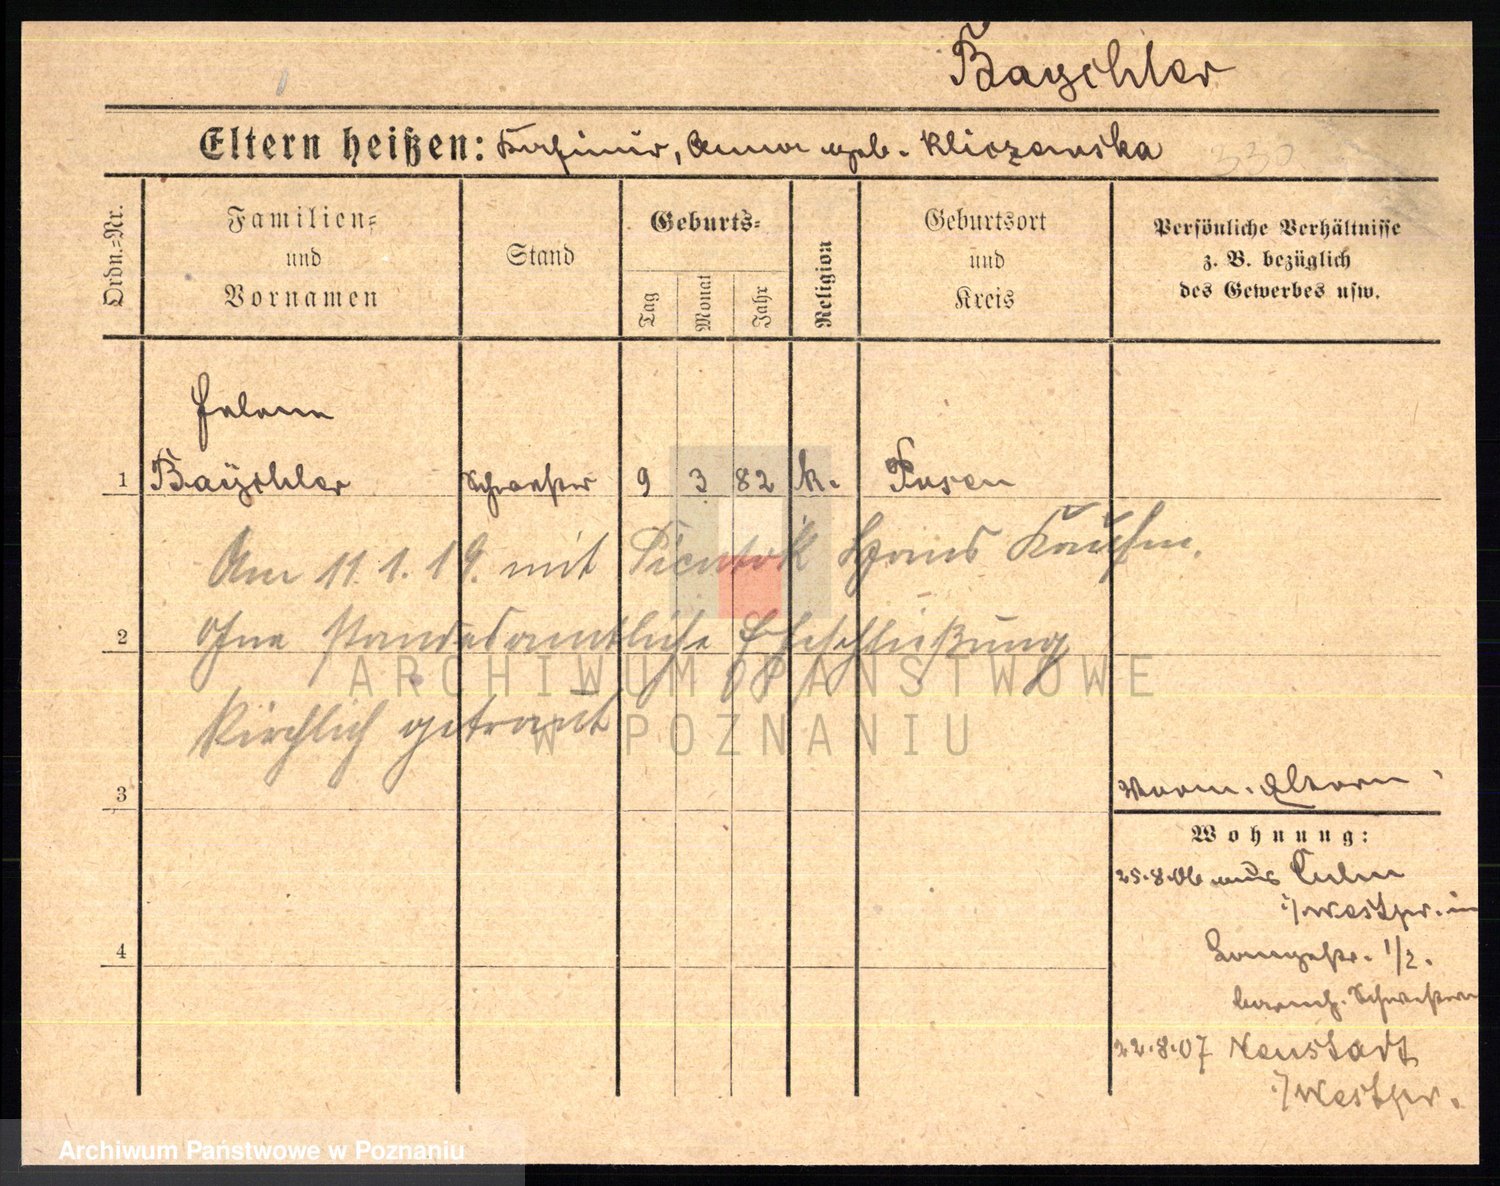 Bayschler
Eltern heißen: Kasimir, Anna geb. Kliczewska
330
Ordn.-Nr.
Familien- und Vornamen
Stand
Geburts-
Tag
Monat
Jahr
Religion
Geburtsort und Kreis
Persönliche Verhältnisse
z. B. bezüglich
des Gewerbes usw.
Helene
1 Bayschler Schwester 9 3 82 k. Posen
Am 11.1.19. mit Hans
ohne standesamtliche Eheschließung
2
kirchlich getraut
3
Eltern
Wohnung:
25.8.06 aus Culm
i/Westpr. in
4
Langestr. 1/2.
barmh. Schwestern
22.8.07 Neustadt
i/Westpr.
ARCHIWUM PAŃSTWOWE
W POZNANIU
Archiwum Państwowe w Poznaniu